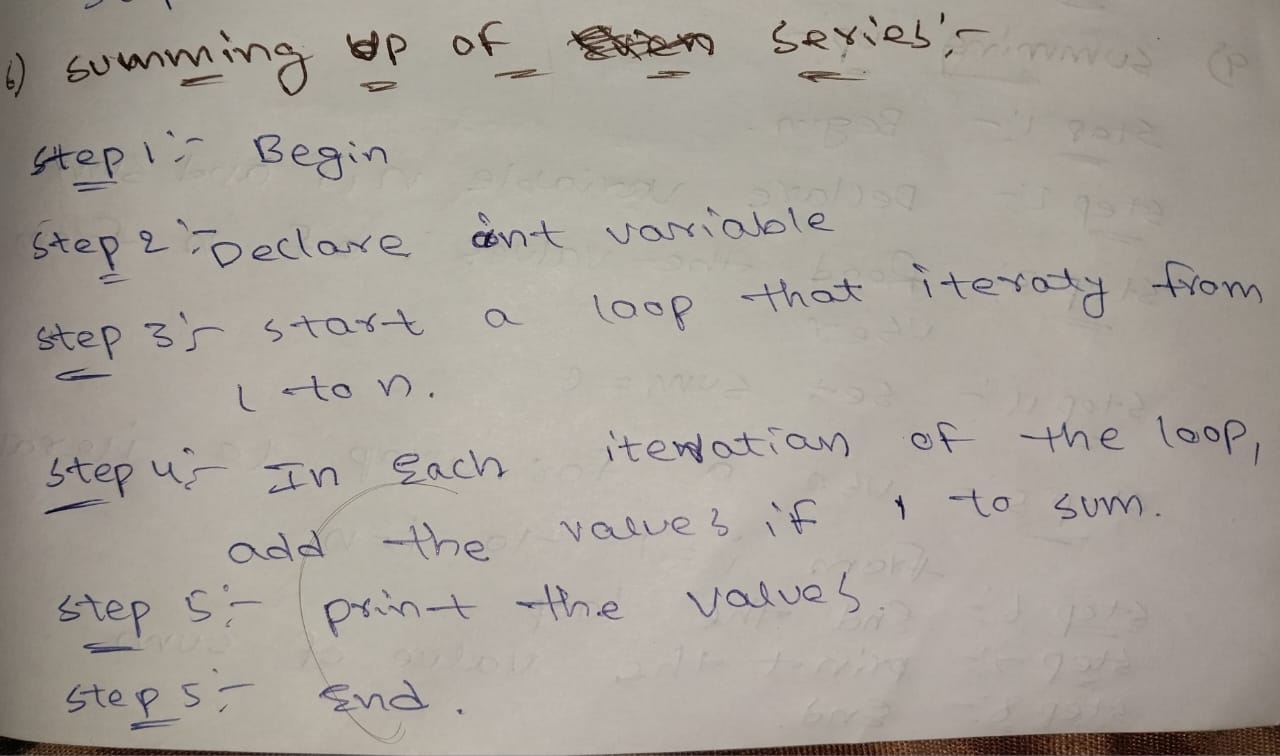 6) summing up of series:-
step 1:- Begin
step 2:- Declare int variable
step 3:- start a loop that iteraty from
1 to n.
step 4:- In Each iteration of the loop,
add the values if 1 to sum.
step 5:- print the values.
step 5:- End.